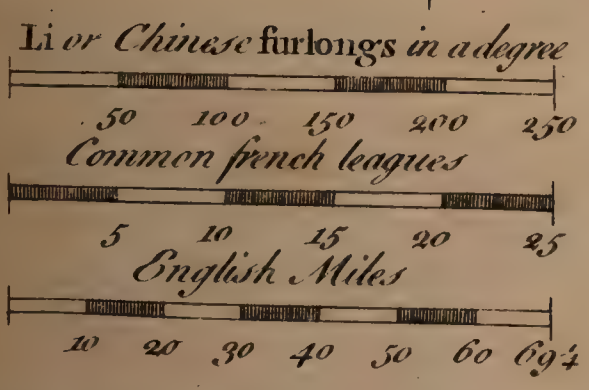 Li or Chinese furlongs in a degree
50 100 150 200 250
Common french leagues
5 10 15 20 25
English Miles
10 20 30 40 50 60 69¼